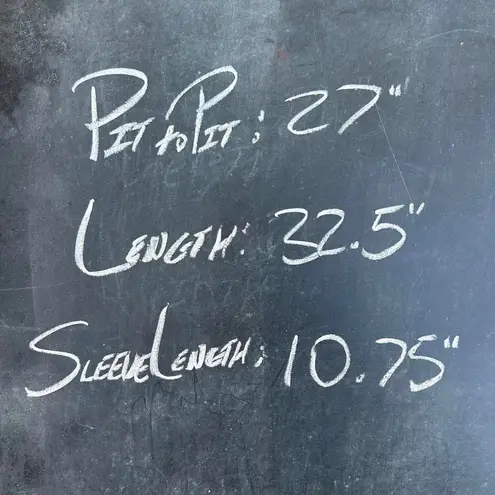 Pit to Pit: 27"
Length: 32.5"
Sleeve Length: 10.75"